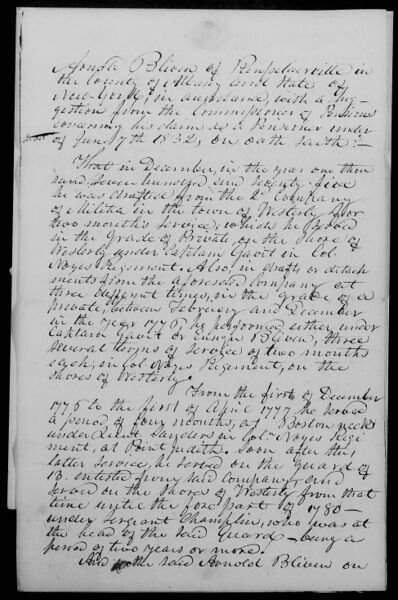 Arnold Bliven of Rensselaerville in
the County of Albany and State of
New-York, in accordance, with a sug-
gestion from the Commissioner of Pensions
concerning his claim as a Pensioner under
of June 7th 1832, on oath saith:-
That in December, in the year one thou
sand seven hundred and seventy-five
he was drafted from the 2d Company
of Militia in the town of Westerly for
two months service, which he served
in the grade of Private, on the shore of
Westerly under Captain Gavit in Col.
Noyes Regiment. Also, in drafts or detach
ments from the aforesaid company at
three different times, in the grade of a
private, between February and December
in the year 1776 he performed either under
Captain Gavit or Ensign Bliven, three
several terms of service of two months
each, in Col Noyes Regiment, on the
shores of Westerly.
From the first of December
1776 to the first of April 1777 he served
a period of four months, at Boston neck
under Lieut. Sanders in Col. Noyes Regi
ment, at Point Judith. Soon after this
latter service, he served on the Guard of
13. enlisted from said Company and
served on the shores of Westerly from that
time until the fore part of 1780-
under Sergeant Champlin, who was at
the head of the said Guard - being a
period of two years or more.
And the said Arnold Bliven on